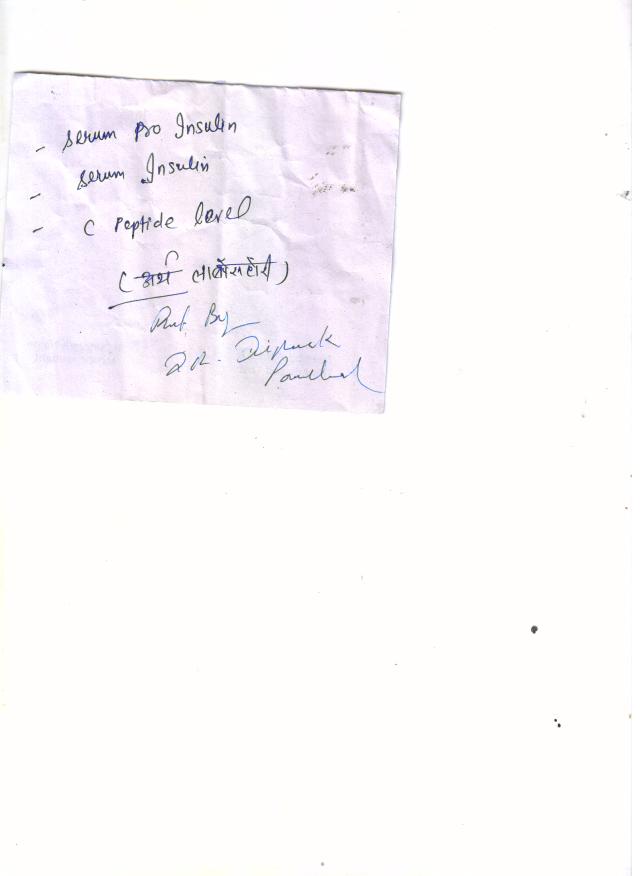 - Serum pro Insulin
- Serum Insulin
- C Peptide level
( अर्थ लाबोरेटोरी )
Ref. By
DR. Dipack
Panchal